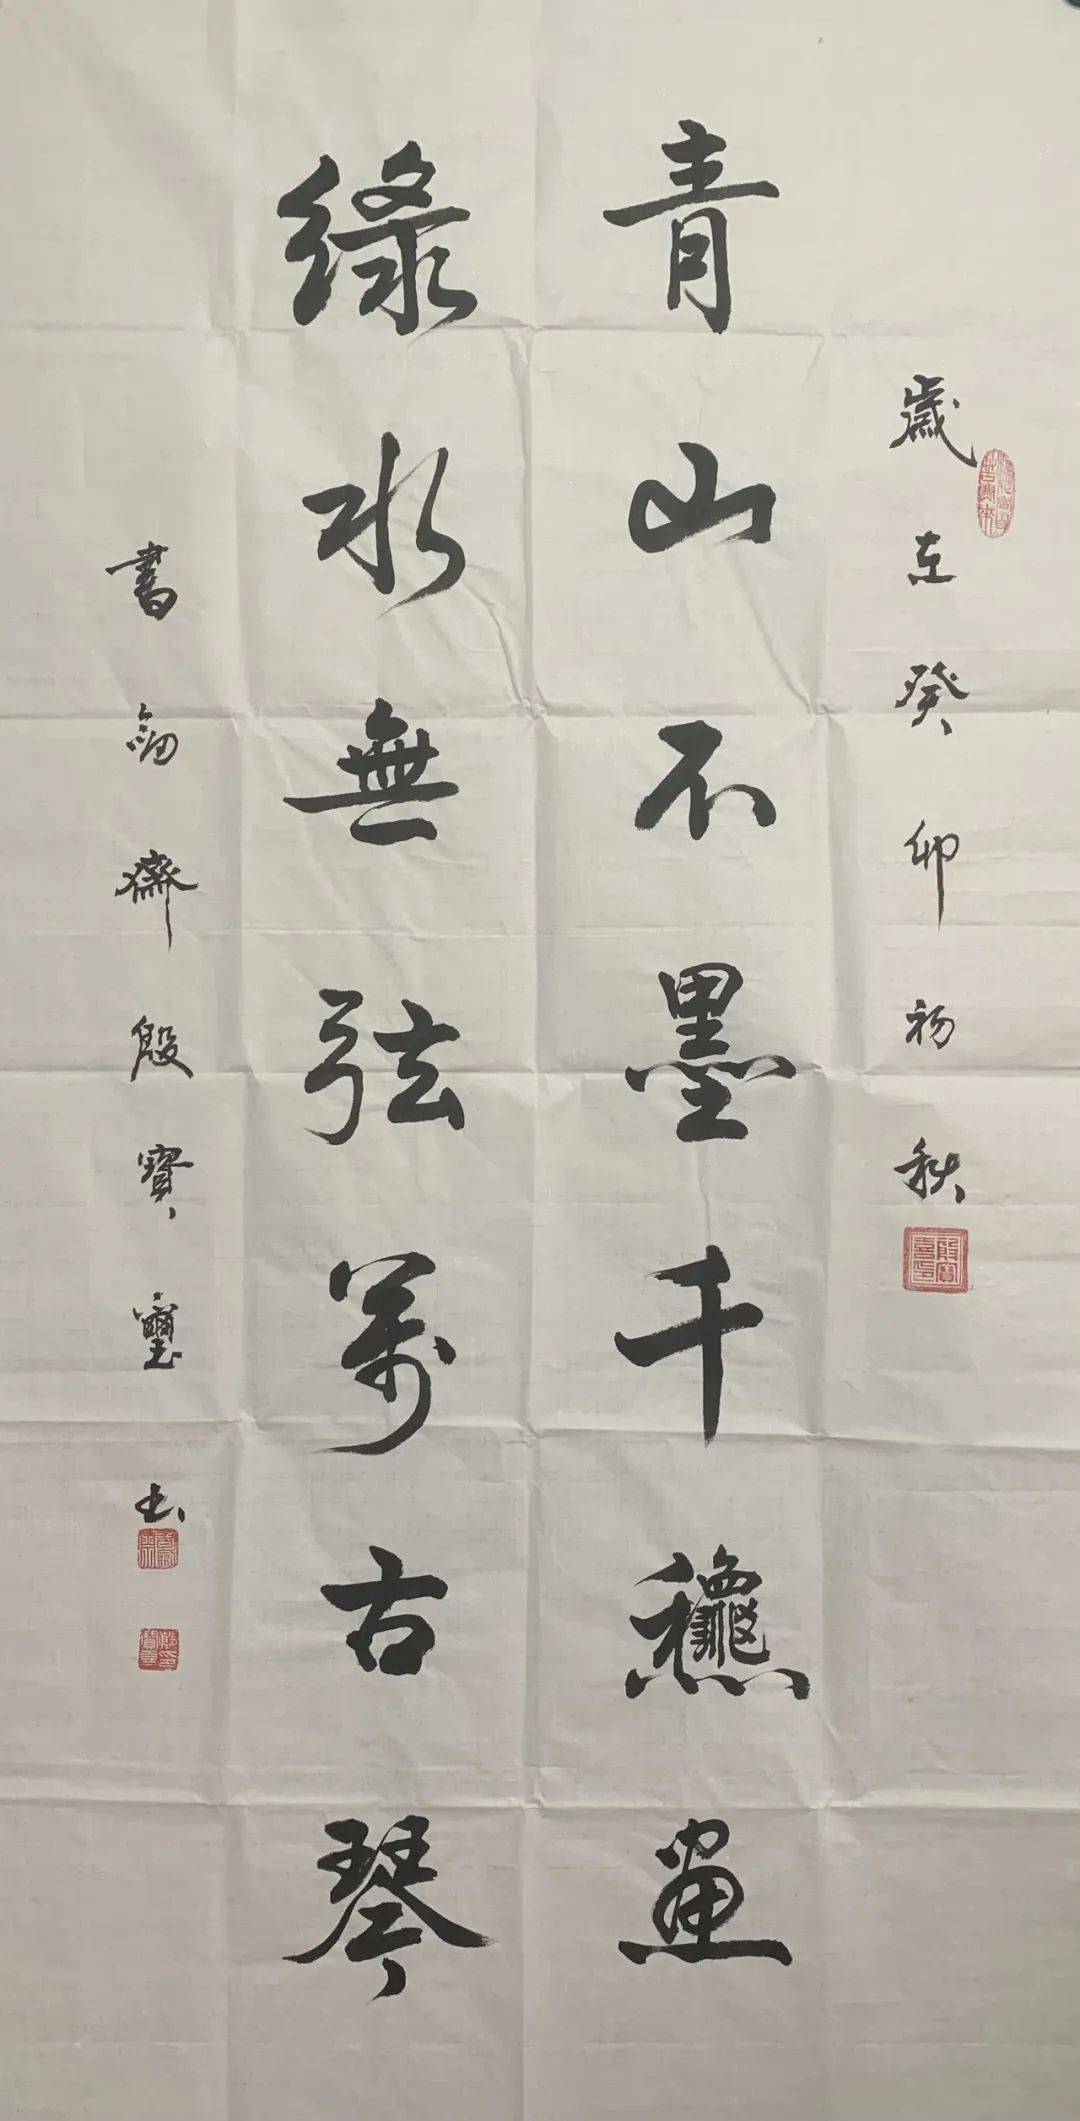 歲在癸卯初秋
青山不墨千龝畫
綠水無弦萬古琴
書劍齋殷寶璽書
殷寶璽印